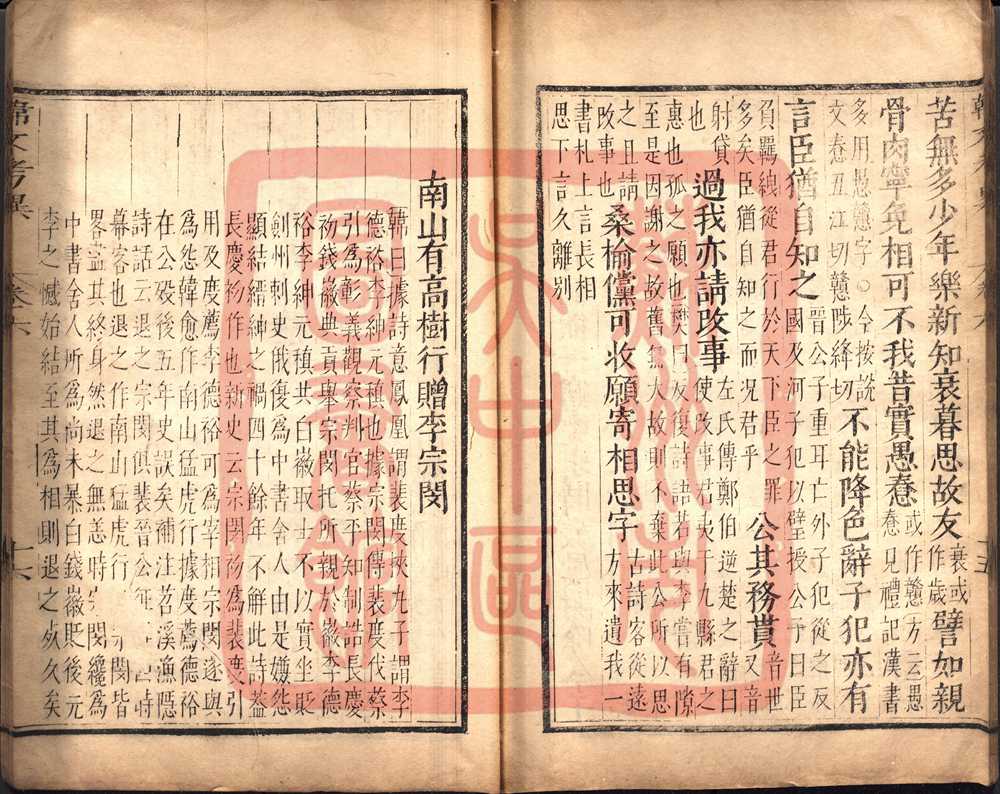 苦無多少年樂新知衰暮思故友衰或作歲譬如親
骨肉寧免相可不我昔實愚惷或作戇方云愚惷見禮記漢書
多用愚戇字○今按說文惷丑江切戇陟絳切不能降色辭子犯亦有
言臣猶自知之晉公子重耳亡外子犯從之反國及河子犯以璧授公子曰臣
負羈絏從君行於天下臣之罪多矣臣猶自知之而况君乎公其務貰音世又音
射貸也過我亦請改事左氏傳鄭伯逆楚之辭曰使改事君夷于九縣君之
惠也孤之願也樊曰反復詩語若與李嘗有隙
至是因謝之故舊無大故則不棄此公所以思
之且請改事也桑榆儻可收願寄相思字古詩客從遠方來遺我一
書札上言長相思下言久離別
南山有高樹行贈李宗閔
韓曰據詩意鳳凰謂裴度挾九子謂李
德裕李紳元稹也據宗閔傳裴度伐蔡
引為彰義觀察判官蔡平知制誥長慶
初錢徽典貢舉宗閔托所親於徽李德
裕李紳元稹共白徽取士不以實坐貶
劍州刺史俄復為中書舍人由是嫌怨
顯結縉紳之禍四十餘年不解此詩葢
長慶初作也新史云宗閔初為裴度引
用及度薦李德裕可為宰相宗閔遂與
為怨韓愈作南山猛虎行據度薦德裕
在公歿後五年史誤矣補注苕溪漁隱
詩話云退之宗閔俱裴晉公征時
幕客也退之作南山猛虎行閔皆
畧葢其終身然退之無恙時閔纔為
中書舍人所為尚未暴白錢徽貶後元
李之憾始結至其為相則退之歿久矣
韓文考異
卷六
十六